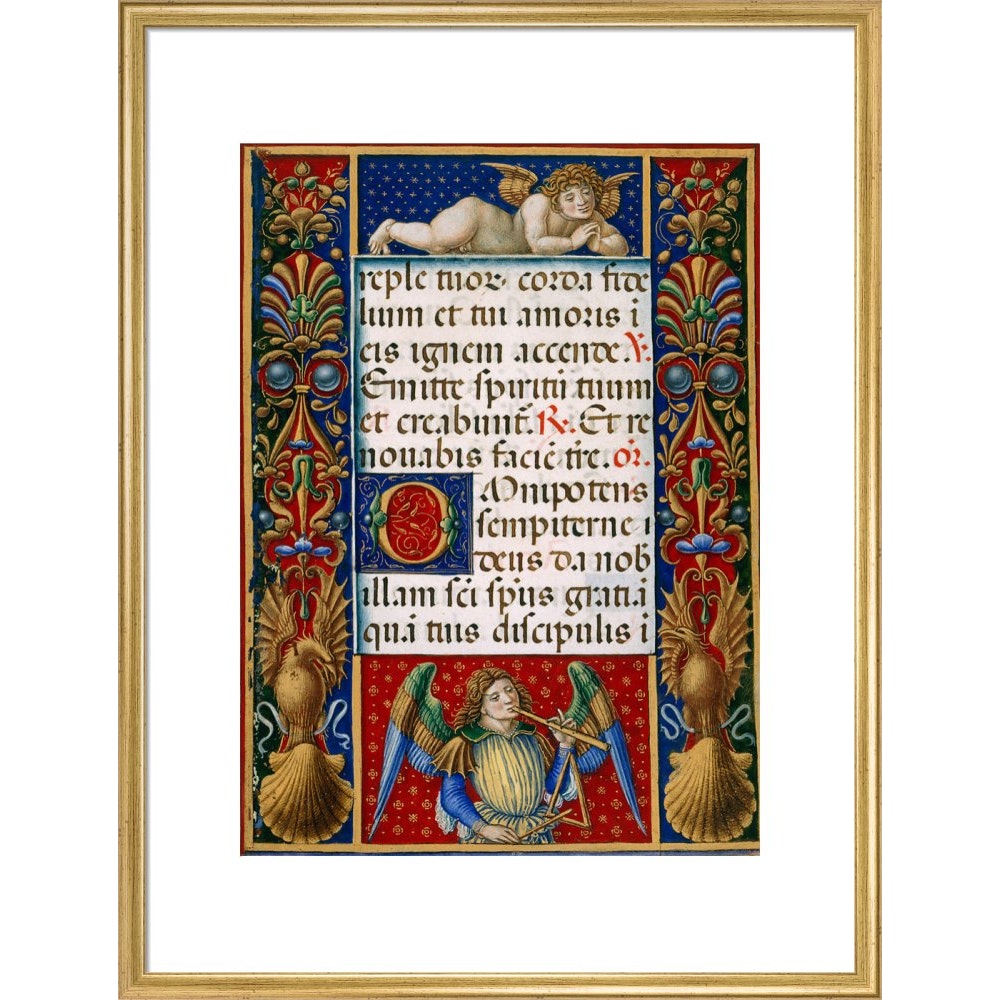 reple tuor corda fide
lium et tui amoris i
eis ignem accende. V.
Emitte spiritū tuum
et creabunt̃. R. Et re
novabis faciē tr̃e. or̃.
OMnipotens
sempiterne i
deus da nob
illam sc̃i sp̃us gratiā
quā tuis discipulis i